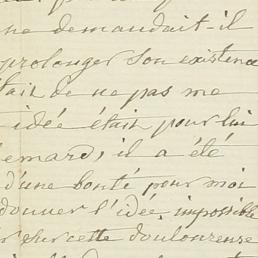 ne demandait-il
prolonger son existence
était de ne pas me
idée était pour lui
emard, il a été
d'une bonté pour moi
donner l'idée, impossible
sur cette douloureuse